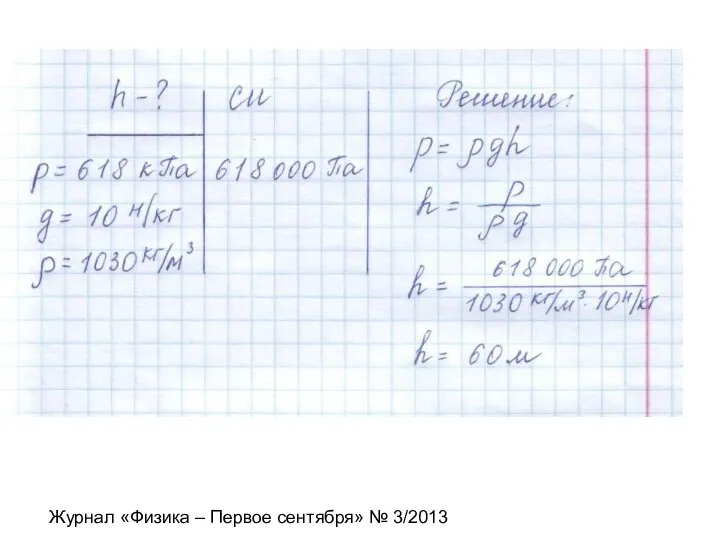 h - ? СИ
p = 618 кПа 618 000 Па
g = 10 Н/кг
ρ = 1030 кг/м³
Решение:
p = ρgh
h = p / ρg
h = 618 000 Па / 1030 кг/м³ · 10 Н/кг
h = 60 м
Журнал «Физика – Первое сентября» № 3/2013